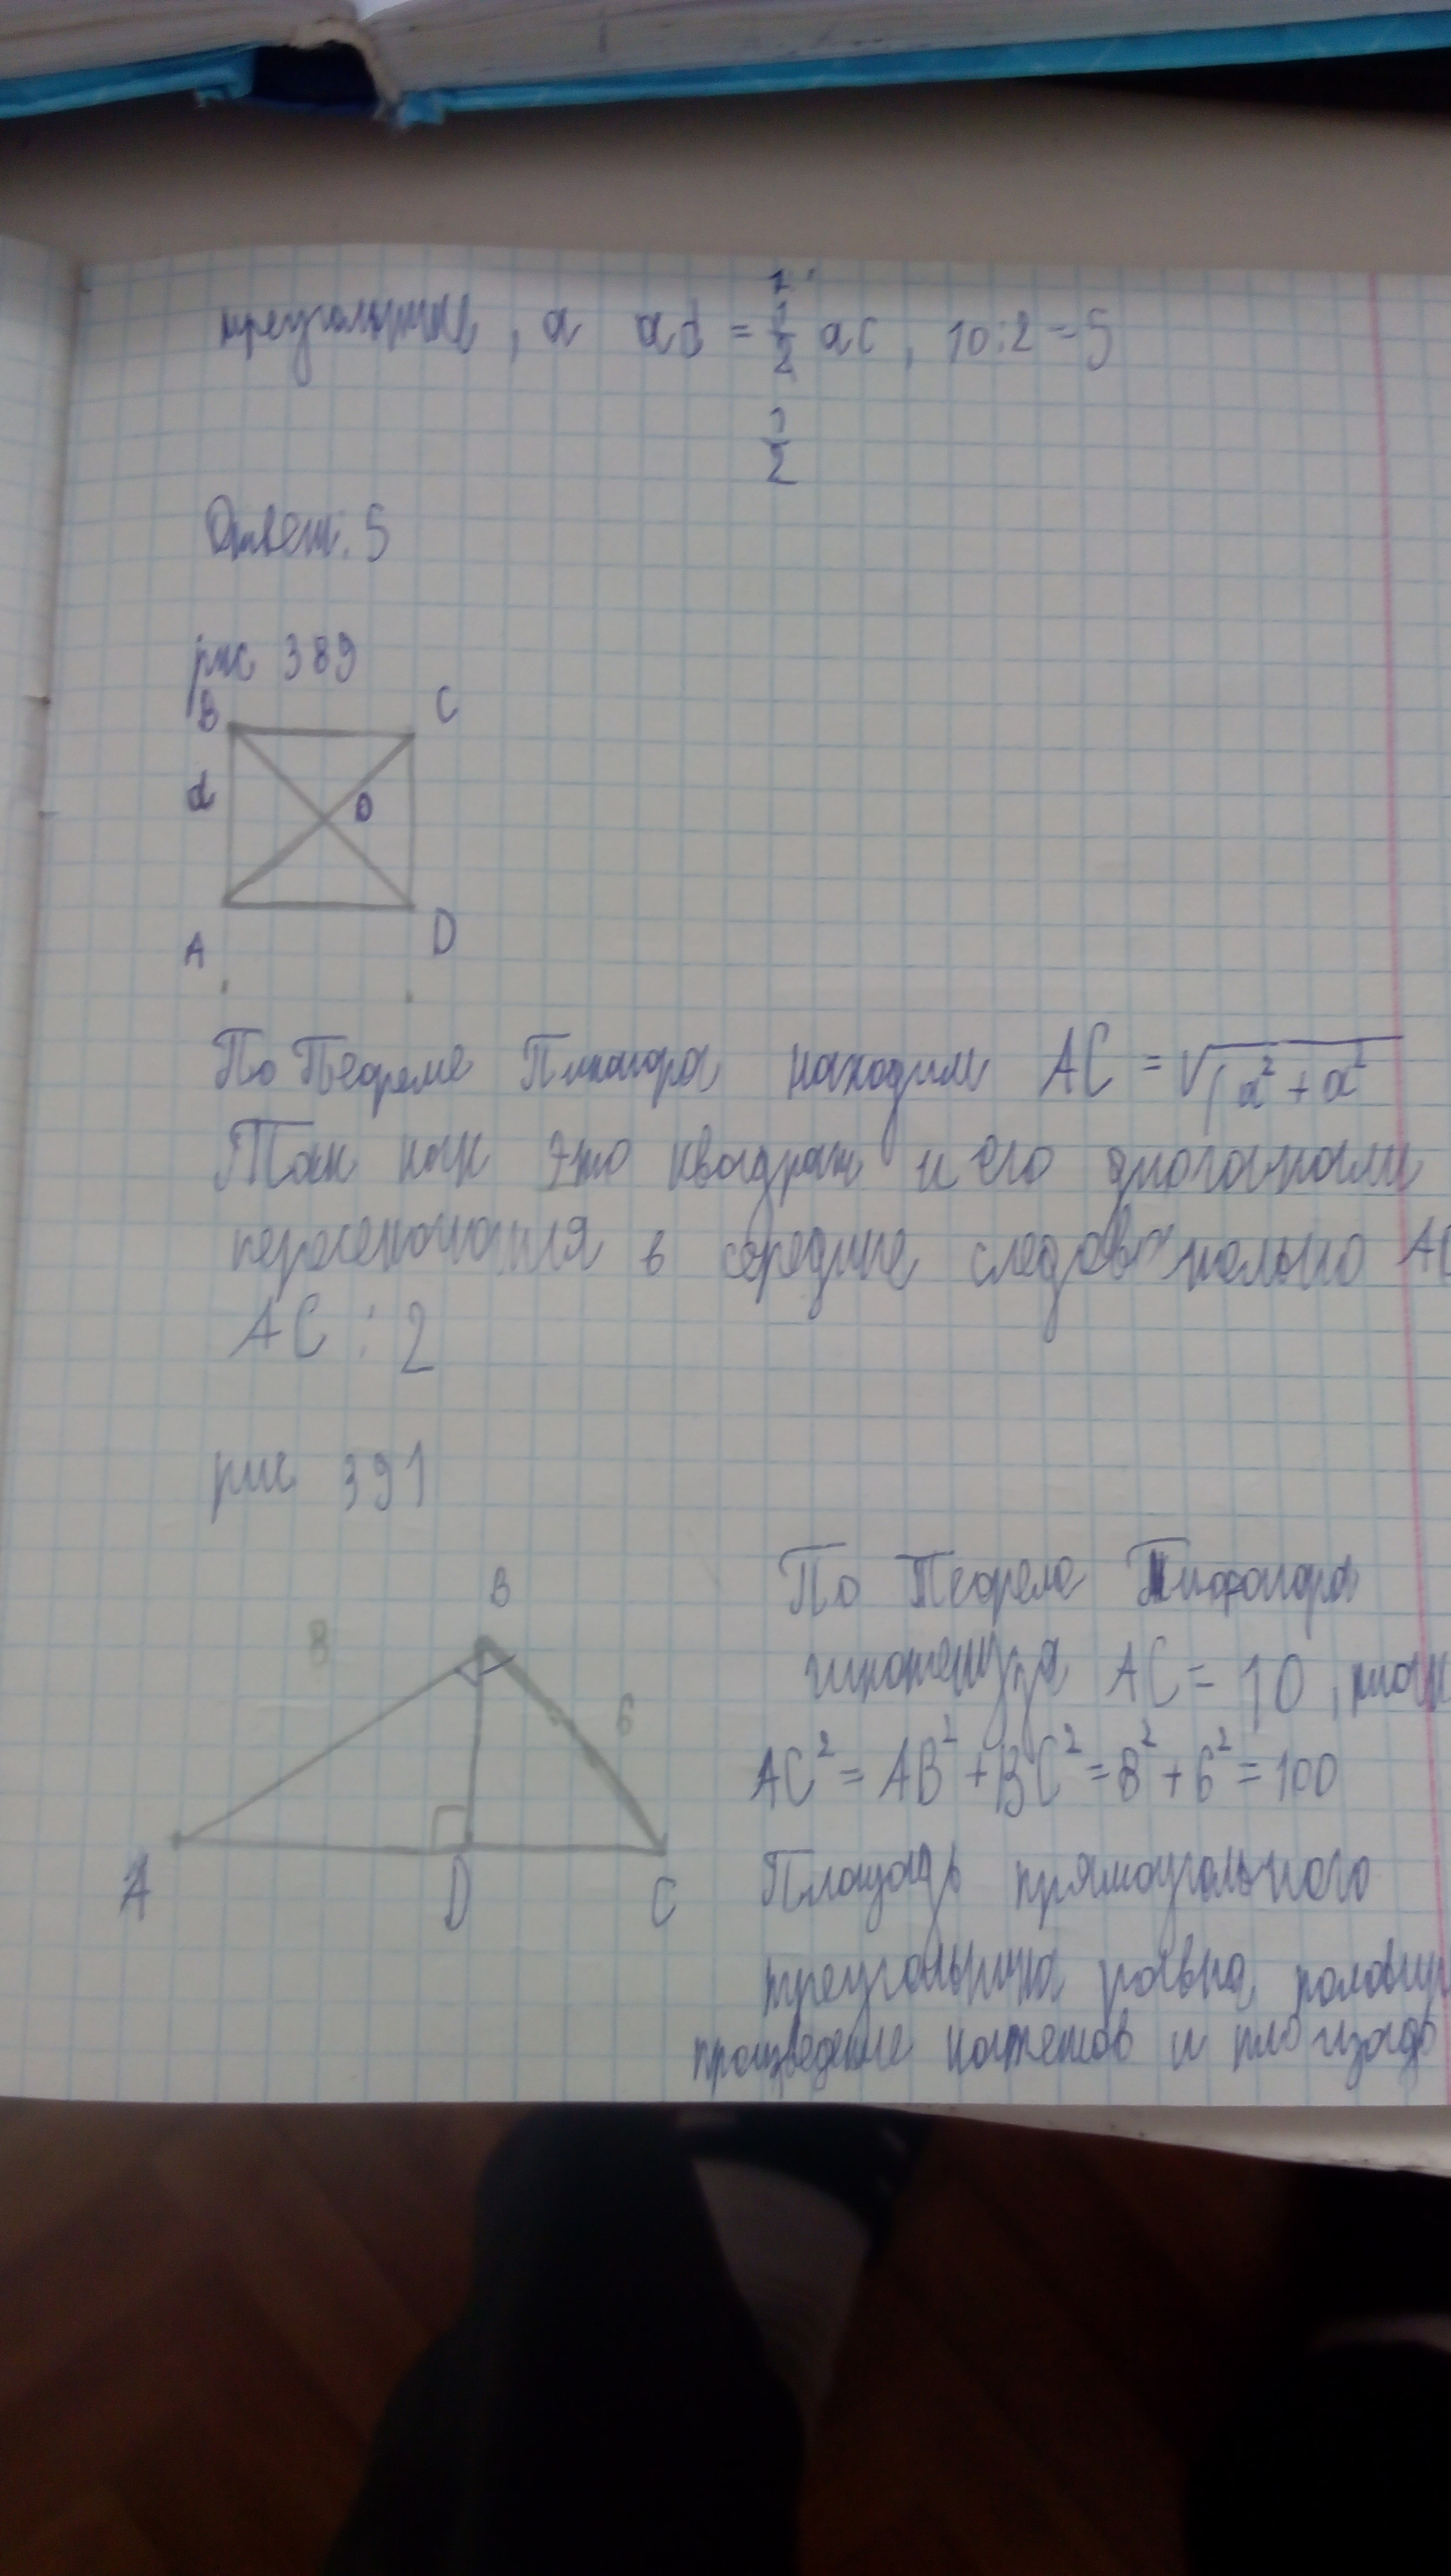 треугольнике, а ad = 1/2 ac, 10:2=5
1
2
Ответ: 5
рис 389
B C
d O
A D
По Теореме Пифагора находим AC = √a² + a²
Так как это квадрат и его диогонали
пересекаются в середине следовательно
AC : 2
рис 391
B
8
6
A D C
По Теореме Пифагора
гипотенуза AC = 10,
AC² = AB² + BC² = 8² + 6² = 100
Площадь прямоугольного
треугольника равна
произведение катетов и площадь